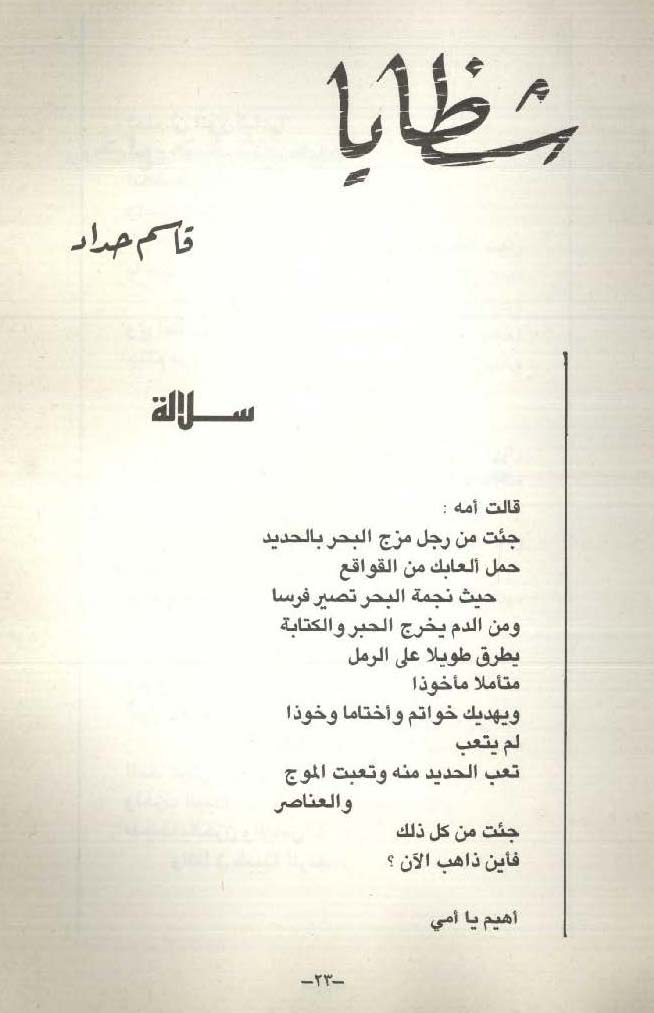 شظايا
قاسم حداد
سلالة
قالت أمه :
جئت من رجل مزج البحر بالحديد
حمل ألعابك من القواقع
حيث نجمة البحر تصير فرسا
ومن الدم يخرج الحبر والكتابة
يطرق طويلا على الرمل
متأملا مأخوذا
ويهديك خواتم وأختاما وخوذا
لم يتعب
تعب الحديد منه وتعبت الموج
والعناصر
جئت من كل ذلك
فأين ذاهب الآن ؟
أهيم يا أمي
—٢٣—